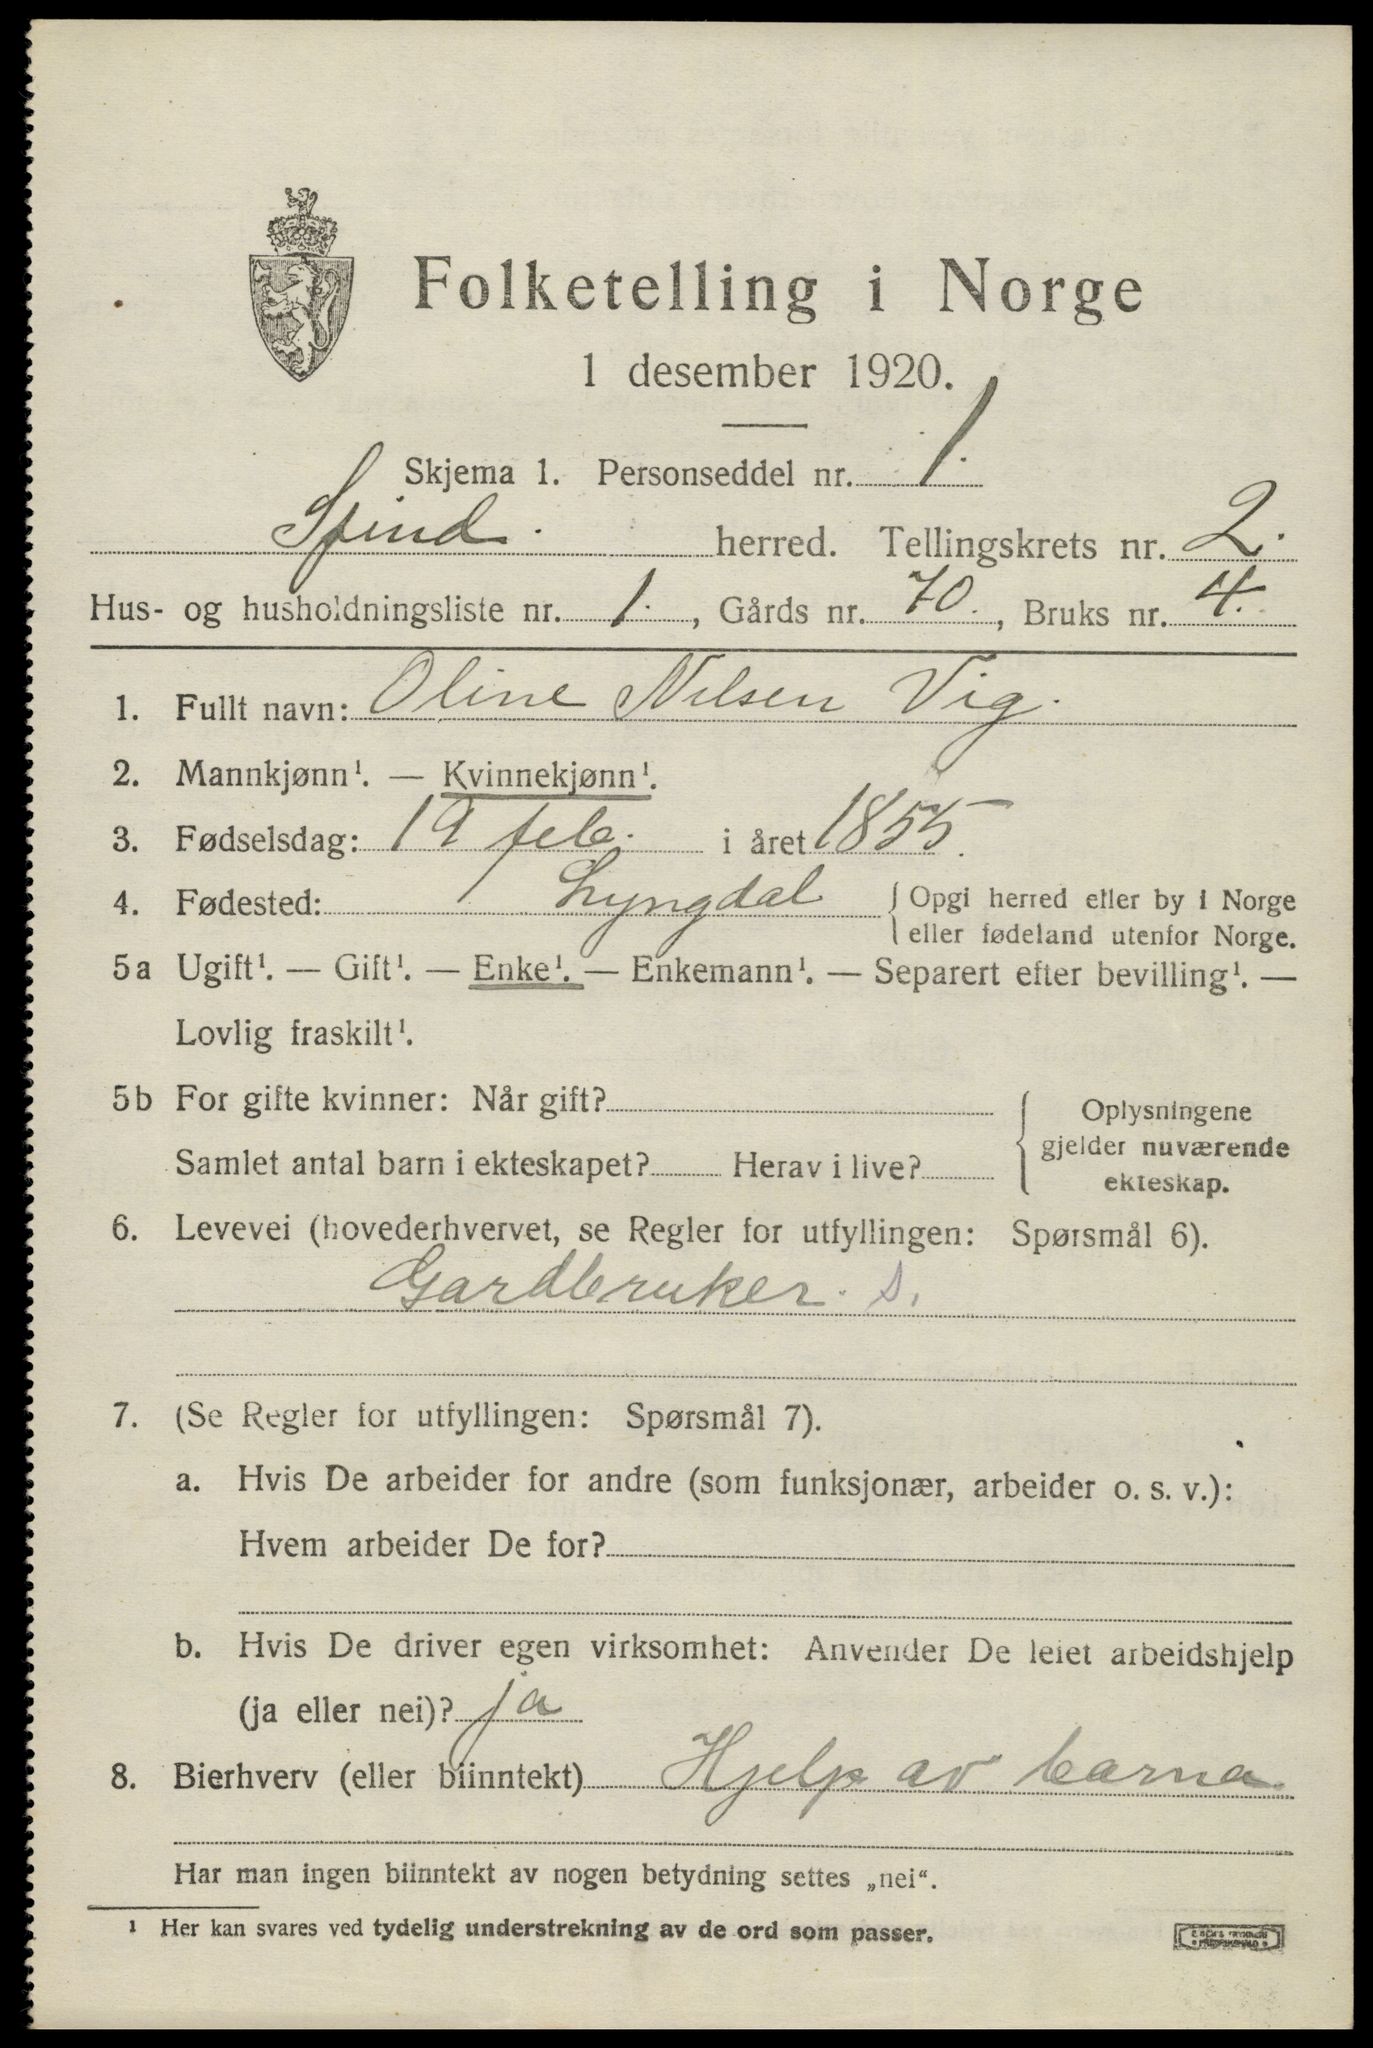 Folketelling i Norge
1 desember 1920.
Skjema 1. Personseddel nr. 1.
Spind. herred. Tellingskrets nr. 2.
Hus- og husholdningsliste nr. 1., Gårds nr. 70., Bruks nr. 4.
1. Fullt navn: Oline Nilsen Vig.
2. Mannkjønn¹. — Kvinnekjønn¹.
3. Fødselsdag: 19 feb. i året 1855.
4. Fødested: Lyngdal { Opgi herred eller by i Norge
eller fødeland utenfor Norge.
5a Ugift¹. — Gift¹. — Enke¹. — Enkemann¹. — Separert efter bevilling¹. —
Lovlig fraskilt¹.
5b For gifte kvinner: Når gift?
Samlet antal barn i ekteskapet? Herav i live?
Oplysningene
gjelder nuværende
ekteskap.
6. Levevei (hovederhvervet, se Regler for utfyllingen: Spørsmål 6).
Gardbruker. s.
7. (Se Regler for utfyllingen: Spørsmål 7).
a. Hvis De arbeider for andre (som funksjonær, arbeider o. s. v.):
Hvem arbeider De for?
b. Hvis De driver egen virksomhet: Anvender De leiet arbeidshjelp
(ja eller nei)? ja
8. Bierhverv (eller biinntekt) Hjelp av barna
Har man ingen biinntekt av nogen betydning settes „nei“.
¹ Her kan svares ved tydelig understrekning av de ord som passer.